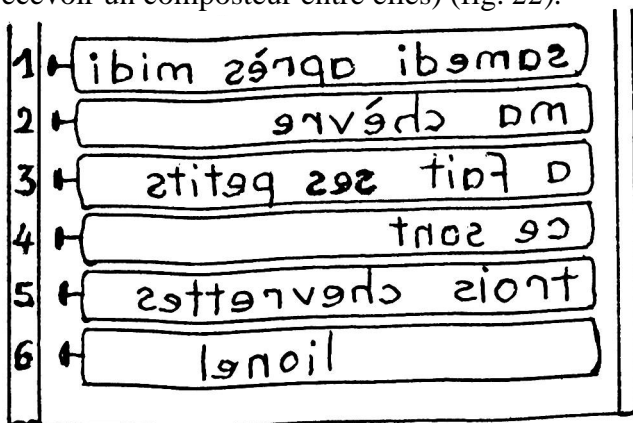 ecevoir un composteur entre elles) (fig. 22).
1 samedi après midi
2 ma chèvre
3 a fait ses petits
4 ce sont
5 trois chevrettes
6 lionel